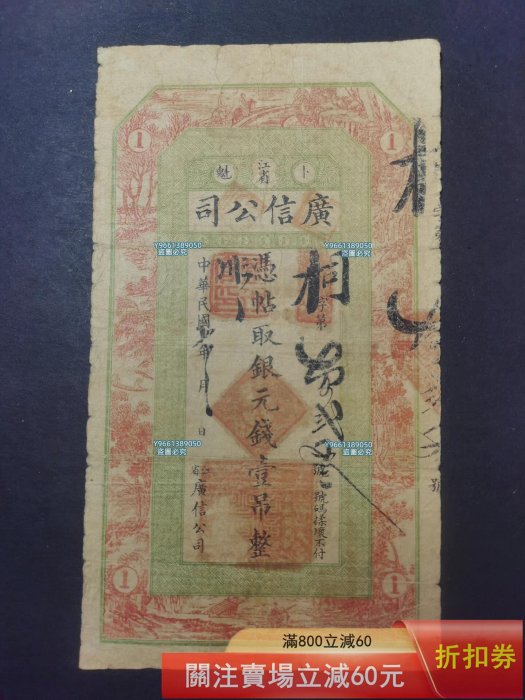 1
1
卜
江省
魁
廣信公司
Y9661389050
盜圖必究
Y9661389050
盜圖必究
Y9661389050
盜圖必究
Y9661389050
盜圖必究
字第
號
號碼樣壞不付
憑帖取銀元錢壹吊整
中華民國
年
月
日
江省
廣信公司
號
Y9661389050
盜圖必究
Y9661389050
盜圖必究
1
1
滿800立減60
關注賣場立減60元
折扣券